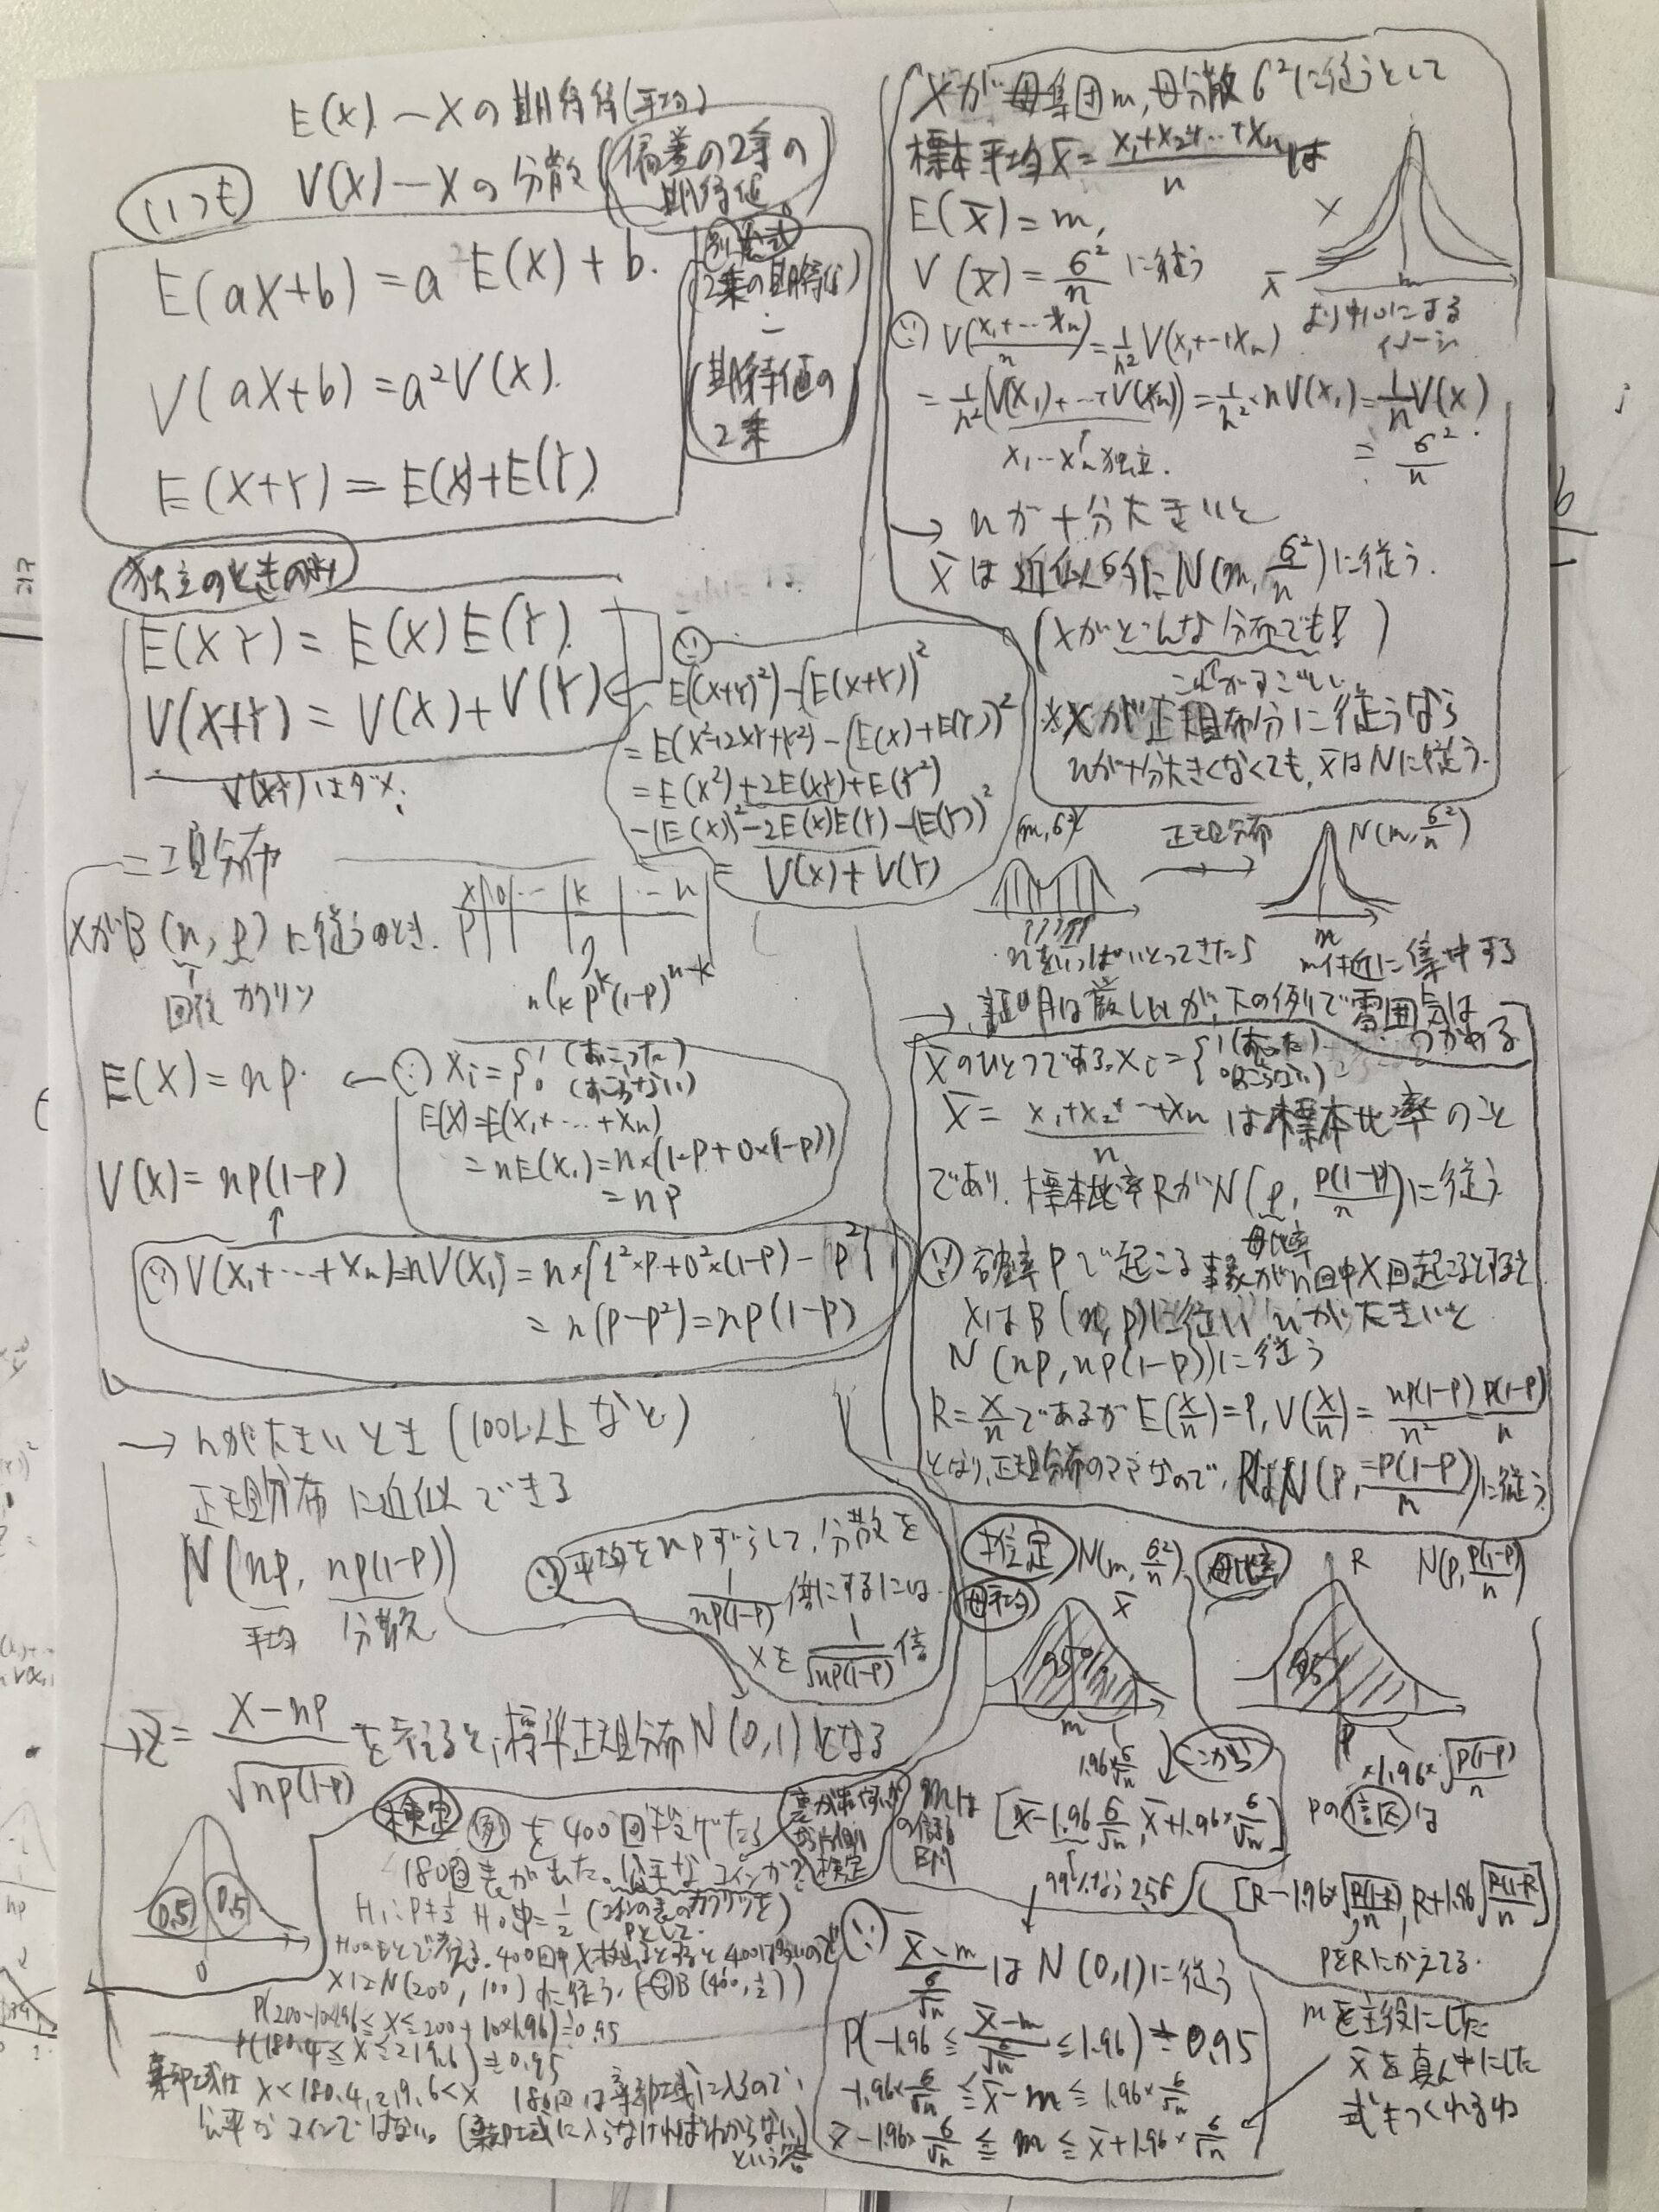 E(X) ー Xの期待待(平均)
V(X) ー Xの分散 (偏差の2乗の
期待値。
いつも
E(aX+b) = a²E(X) + b.
V(aX+b) = a²V(X).
E(X+Y) = E(X)+E(Y).
別公式
(2乗の期待値)
−
(期待値の
2乗
独立のときのみ
E(XY) = E(X)E(Y).
V(X+Y) = V(X)+V(Y)
V(XY)はダメ;
∵
E((X+Y)²) − (E(X+Y))²
= E(X²+2XY+Y²) − (E(X)+E(Y))²
= E(X²)+2E(XY)+E(Y²)
−(E(X))²−2E(X)E(Y)−(E(Y))²
= V(X)+V(Y)
二項分布
XがB(n, p)に従うのとき.
回後 カクリツ
X 0 … k … n
P
nCk p^k(1−p)^n−k
E(X) = np.
← ∵ Xi = { 1 (おこった)
0 (おこらない)
E(X)=E(X₁+…+Xn)
= nE(X₁)=n×(1・P+0×(1−P))
= np
V(X) = np(1−p)
↑
∵ V(X₁+…+Xn)=nV(X₁) = n×{1²×P+0²×(1−P) − P²}
= n(P−P²)=np(1−P)
→ nが大きいとき(100以上など)
正規分布に近似できる
N(np, np(1−p))
平均 分散
∵ 平均をnpずらして,分散を
1/np(1−p) 倍にするには
Xを 1/√np(1−p) 倍
→ Z = X−np/√np(1−p) を考えると,標準正規分布N(0,1)となる
0.5 0.5
0
検定
例 を400回投げたら
180回表が出た。公平なコインか?
片側
検定
H₁:P≠½ H₀:P=½ (コインの表のカクリツを
Pとして.
H₀のもとで考える.400回中X枚出るとすると400は大きいので
XはN(200, 100)に従う.(∵B(400, ½))
P(200−10×1.96 ≦ X ≦ 200+10×1.96)≒0.95
P(180.4≦X≦219.6)≒0.95
棄却域は X<180.4, 219.6<X 180回は棄却域に入るので,
公平なコインではない。(棄却域に入らなければわからない
という答
Xが母集団m,母分散σ²に従うとして
標本平均X̄ = X₁+X₂+…+Xn/n は
E(X̄)=m,
V(X̄) = σ²/n に従う
X
X̄
m
より中心によるイメージ
∵ V(X₁+…Xn/n)=1/n² V(X₁+…+Xn)
= 1/n²(V(X₁)+…+V(Xn)) = 1/n²・nV(X₁)=1/n V(X)
X₁…Xn独立.
= σ²/n
→ nが十分大きいと
X̄は近似的にN(m, σ²/n)に従う.
(Xがどんな分布でも!)
これがすごい
※Xが正規布分に従うなら
nが十分大きくなくても,X̄はNに従う.
(m, σ²)
正規分布
→
N(m, σ²/n)
m
nをいっぱいとってきたら
m付近に集中する
→ 証明は厳しいが,下の例で雰囲気は
つかめる
XのひとつであるXi = { 1(おこった)
0(おこらない)
X̄ = X₁+X₂+…+Xn/n は標本比率のこと
であり,標本比率RがN(p, p(1−p)/n)に従う
母比率
∵ 確率Pで起こる事象がn回中X回起こるとすると
XはB(n, p)に従い nが大きいと
N(np, np(1−p))に従う
R=X/nであるが E(X/n)=P, V(X/n)= np(1−p)/n² = p(1−p)/n
となり,正規分布のママなので,RはN(P, =P(1−P)/n)に従う
推定
母平均
N(m, σ²/n)
X̄
95%
m
1.96σ/√n
↓ここから
mは
の信頼
区間
[X̄−1.96 σ/√n, X̄+1.96×σ/√n]
99%なら2.58
母比率
R
N(P, P(1−P)/n)
95%
P
×1.96×√P(1−P)/n
Pの信区は
[R−1.96×√R(1−R)/n, R+1.96√R(1−R)/n]
PをRにかえてる.
∵ X̄−m/σ/√n はN(0,1)に従う
P(−1.96 ≦ X̄−m/σ/√n ≦ 1.96)≒0.95
−1.96×σ/√n ≦ X̄−m ≦ 1.96×σ/√n
X̄−1.96×σ/√n ≦ m ≦ X̄+1.96×σ/√n
mを主役にした
X̄を真ん中にした
式もつくれるね